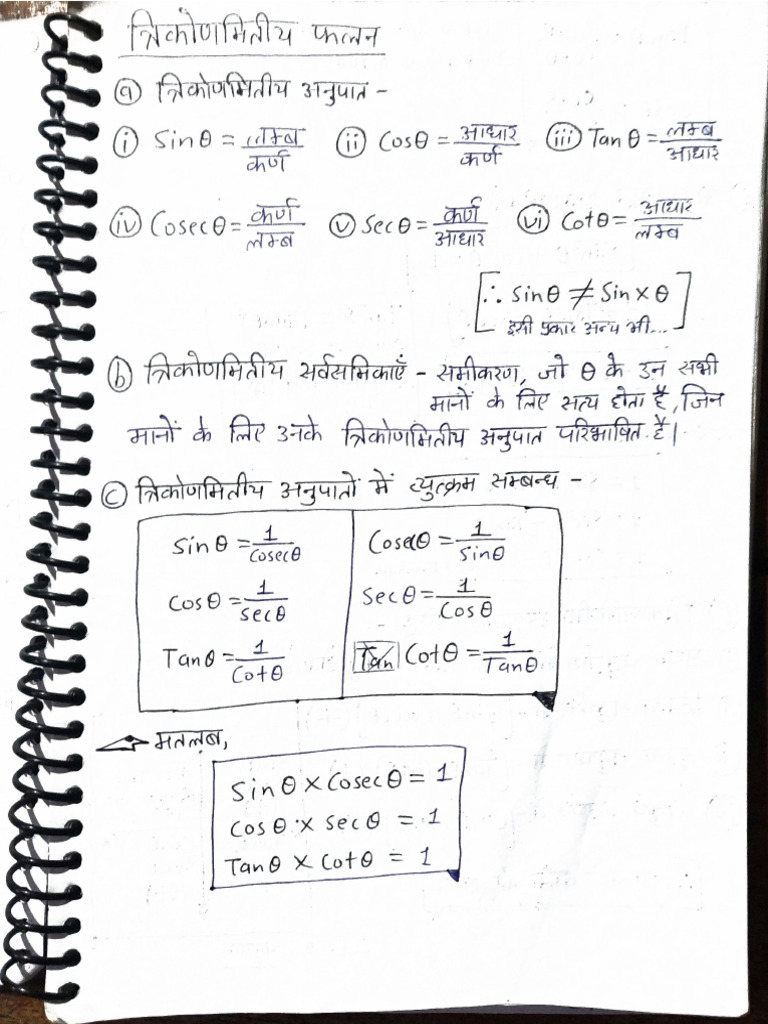 त्रिकोणमितीय फलन
ⓐ त्रिकोणमितीय अनुपात -
ⓘ Sinθ = लम्ब/कर्ण ⓘⓘ Cosθ = आधार/कर्ण ⓘⓘⓘ Tanθ = लम्ब/आधार
ⓘⓥ Cosecθ = कर्ण/लम्ब ⓥ Secθ = कर्ण/आधार ⓥⓘ Cotθ = आधार/लम्ब
[∴ Sinθ ≠ Sin x θ
इसी प्रकार अन्य भी...]
ⓑ त्रिकोणमितीय सर्वसमिकाएँ - समीकरण, जो θ के उन सभी
मानों के लिए सत्य होता है, जिन
मानों के लिए उनके त्रिकोणमितीय अनुपात परिभाषित है।
ⓒ त्रिकोणमितीय अनुपातों में व्युत्क्रम सम्बन्ध -
Sinθ = 1/Cosecθ Cosecθ = 1/Sinθ
Cosθ = 1/Secθ Secθ = 1/Cosθ
Tanθ = 1/Cotθ Cotθ = 1/Tanθ
मतलब,
Sinθ x Cosecθ = 1
Cosθ x Secθ = 1
Tanθ x Cotθ = 1